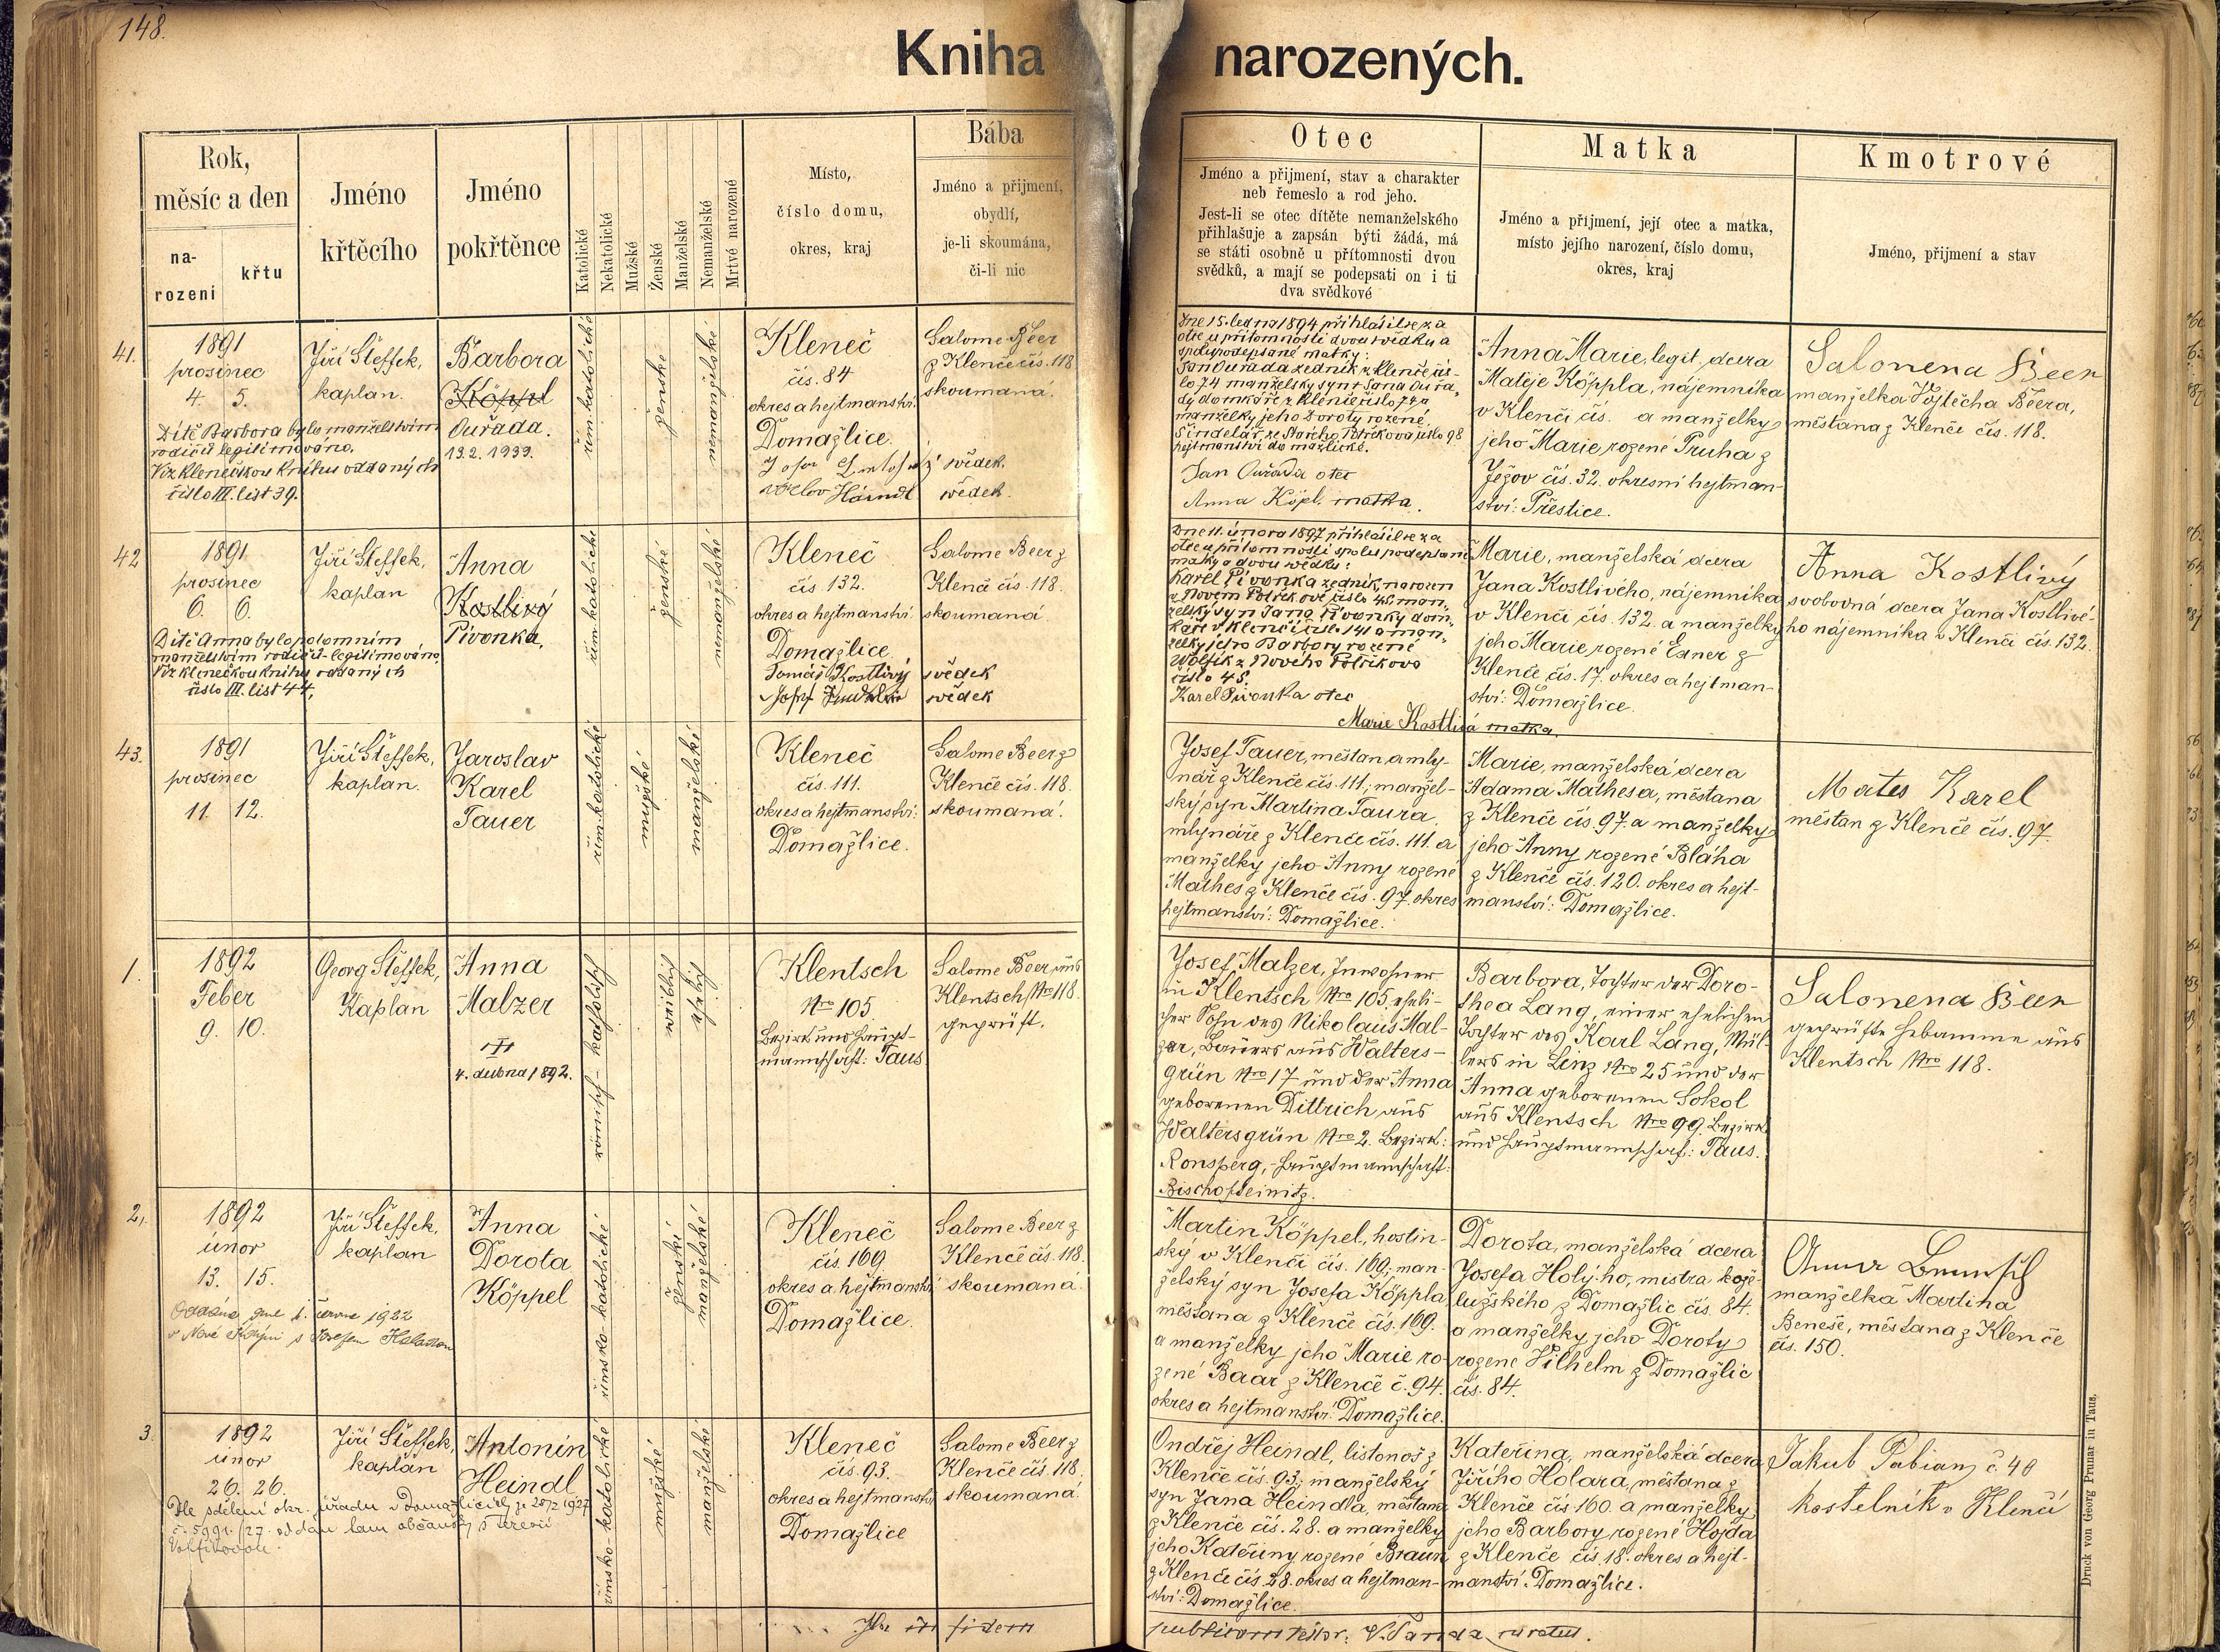 148.
Kniha narozených.
Rok,
měsíc a den
na-
rozeni
křtu
Jméno
křtěcího
Jméno
pokřtěnce
Katolické
Nekatolické
Mužské
Ženské
Manželské
Nemanželské
Mrtvé narozené
Místo,
číslo domu,
okres, kraj
Bába
Jméno a přijmení,
obydlí,
je-li skoumána,
či-li nic
Otec
Jméno a přijmení, stav a charakter
neb řemeslo a rod jeho.
Jest-li se otec dítěte nemanželského
přihlašuje a zapsán býti žádá, má
se státi osobně u přítomnosti dvou
svědků, a mají se podepsati on i ti
dva svědkové
Matka
Jméno a přijmení, její otec a matka,
místo jejího narození, číslo domu,
okres, kraj
Kmotrové
Jméno, přijmení a stav
41.
1891
prosinec
4. 5.
Dítě Barbora bylo manželstvím
rodičů legitimováno.
Viz Klenečskou knihu oddaných
číslo III. list 39.
Jiří Steffek,
kaplan.
Barbora
Köppl
Ouřada.
13.2. 1939.
řím. katolické
ženské
nemanželské
Kleneč
čís. 84
okres a hejtmanství:
Domažlice.
svědek.
svědek.
Salome Beer
z Klenče čís. 118
skoumaná.
Dne 15. ledna 1894 přihlásil se za
otce u přítomnosti dvou svědků a
spolupodepsané matky:
Jan Ouřada zedník z Klenče čís-
lo 74 manželský syn + Jana Ouřa-
dy domkáře z Klenče číslo 74 a
manželky jeho Doroty rozené
Šindelář ze Starého Postřekova číslo 98
hejtmanství domažlické.
Jan Ouřada otec
Anna Köpl. matka.
Anna Marie, legit. dcera
Matěje Köppla, nájemníka
v Klenči čís. a manželky
jeho Marie rozené Pruha z
Ježov čís. 32. okresní hejtman-
ství: Přestice.
Salonena Beer
manželka Vojtěcha Beera,
měšťana z Klenče čís. 118.
42
1891
prosinec
6. 6.
Dítě Anna bylo potomním
manželstvím rodičů legitimováno,
Viz klenečskou knihu oddaných
číslo III. list 44.
Jiří Steffek,
kaplan
Anna
Kostlivý
Pivonka.
řím. katolické
ženské
nemanželské
Kleneč
čís. 132.
okres a hejtmanství:
Domažlice.
Tomáš Kostlivý svědek
svědek
Salome Beer z
Klenč čís. 118.
skoumaná
Dne 11. února 1897 přihlásil se za
otce u přítomnosti spolu podepsané
matky a dvou svědků:
Karel Pivonka zedník, narozen
v Novém Postřekově číslo 45. man-
želský syn Jana Pivonky dom-
káře v Klenči číslo 141 a man-
želky jeho Barbory rozené
Wolfik z Nového Postřekova
číslo 45.
Karel Pivonka otec
Marie Kostlivá matka.
Marie, manželská dcera
Jana Kostlivého, nájemníka
v Klenči čís. 132. a manželky
jeho Marie rozené Exner z
Klenče čís. 17. okres a hejtman-
ství: Domažlice.
Anna Kostlivý
svobodná dcera Jana Kostlivé-
ho nájemníka v Klenči čís. 132.
43.
1891
prosinec
11. 12.
Jiří Steffek,
kaplan.
Jaroslav
Karel
Tauer
řím. katolické
mužské
manželské
Kleneč
čís. 111.
okres a hejtmanství:
Domažlice.
Salome Beer z
Klenče čís. 118.
skoumaná.
Josef Tauer, měšťan a mly-
nář z Klenče čís. 111; manžel-
ský syn Martina Taura,
mlynáře z Klenče čís. 111. a
manželky jeho Anny rozené
Mathes z Klenče čís. 97. okres
hejtmanství: Domažlice.
Marie, manželská dcera
Adama Mathesa, měšťana
z Klenče čís. 97. a manželky
jeho Anny rozené Bláha
z Klenče čís. 120. okres a hejt-
manství: Domažlice.
Mates Karel
měšťan z Klenče čís. 97.
1.
1892
Feber
9. 10.
Georg Steffek,
Kaplan
Anna
Malzer
4. dubna 1892.
römisch-katholisch
weiblich
ehelich
Klentsch
Nro 105
Bezirk und Haupt-
mannschaft: Taus
Salome Beer aus
Klentsch Nro 118.
geprüft.
Josef Malzer, Inwohner
in Klentsch Nro 105, eheli-
cher Sohn des Nikolaus Mal-
zer, Bauers aus Walters-
grün Nro 17 und der Anna
geborenen Dittrich aus
Waltersgrün Nro 2. Bezirk:
Ronsperg, Hauptmannschaft:
Bischofteinitz.
Barbora, Tochter der Doro-
thea Lang, einer ehelichen
Tochter des Karl Lang, Mül-
lers in Linz Nro 25 und der
Anna geborenen Sokol
aus Klentsch Nro 99. Bezirk
und Hauptmannschaft: Taus.
Salonena Beer
geprüfte Hebamme aus
Klentsch Nro 118.
2.
1892
únor
13. 15.
Oddána dne 1. června 1922
v Nové
Jiří Steffek,
kaplan
Anna
Dorota
Köppel
římsko-katolické
ženské
manželské
Kleneč
čís. 169
okres a hejtmanství:
Domažlice.
Salome Beer z
Klenče čís. 118.
skoumaná.
Martin Köppel, hostin-
ský v Klenči čís. 169; man-
želský syn Josefa Köppla,
měšťana z Klenče čís. 169.
a manželky jeho Marie ro-
zené Baar z Klenče č. 94.
okres a hejtmanství: Domažlice.
Dorota, manželská dcera
Josefa Holýho, mistra kože-
lužského z Domažlic čís. 84.
a manželky jeho Doroty
rozené Vilhelm z Domažlic
čís. 84.
manželka Martina
Beneše, měšťana z Klenče
čís. 150.
3.
1892
únor
26. 26.
Dle sdělení okr. úřadu v Domažlicích
Jiří Steffek,
kaplan
Antonín
Heindl
římsko-katolické
mužské
manželské
Kleneč
čís. 93.
okres a hejtmanství
Domažlice
Salome Beer z
Klenče čís. 118.
skoumaná.
Ondřej Heindl, listonoš z
Klenče čís. 93; manželský
syn Jana Heindla, měšťana
z Klenče čís. 28. a manželky
jeho Kateřiny rozené Braun
z Klenče čís. 28. okres a hejtman-
ství: Domažlice.
Kateřina, manželská dcera
Jiřího Holara, měšťana z
Klenče čís 160. a manželky
jeho Barbory rozené Hojda
z Klenče čís. 18. okres a hejt-
manství: Domažlice.
Jakub Pabian č. 40
kostelník v Klenči
in fidem
publicam testor:
Druck von Georg Prunar in Taus.